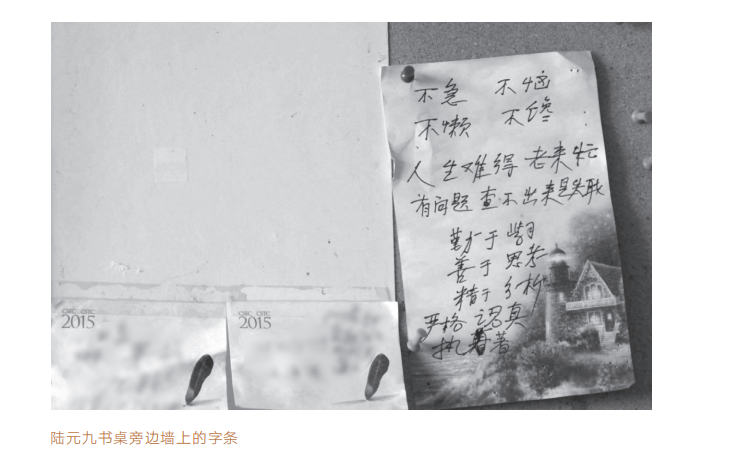 不急 不恼
不懒 不馋
人生难得老来忙
有问题查不出来是失职
勤于学习
善于思考
精于分析
严格认真
执着
CITIC CITIC
2015
CITIC CITIC
2015
陆元九书桌旁边墙上的字条